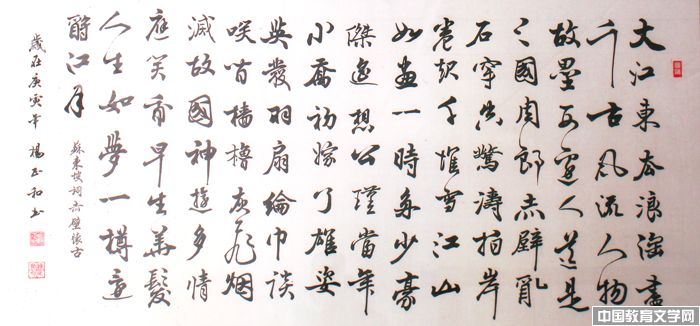 大江東去浪淘盡
千古風流人物
故壘西邊人道是
三國周郎赤壁亂
石穿空驚濤拍岸
卷起千堆雪江山
如畫一時多少豪
傑遥想公瑾當年
小喬初嫁了雄姿
英發羽扇綸巾談
笑間檣櫓灰飛烟
滅故國神遊多情
應笑我早生華髮
人生如夢一樽還
酹江月
蘇東坡詞赤壁懷古
歲在庚寅年楊和書
中国教育文学网